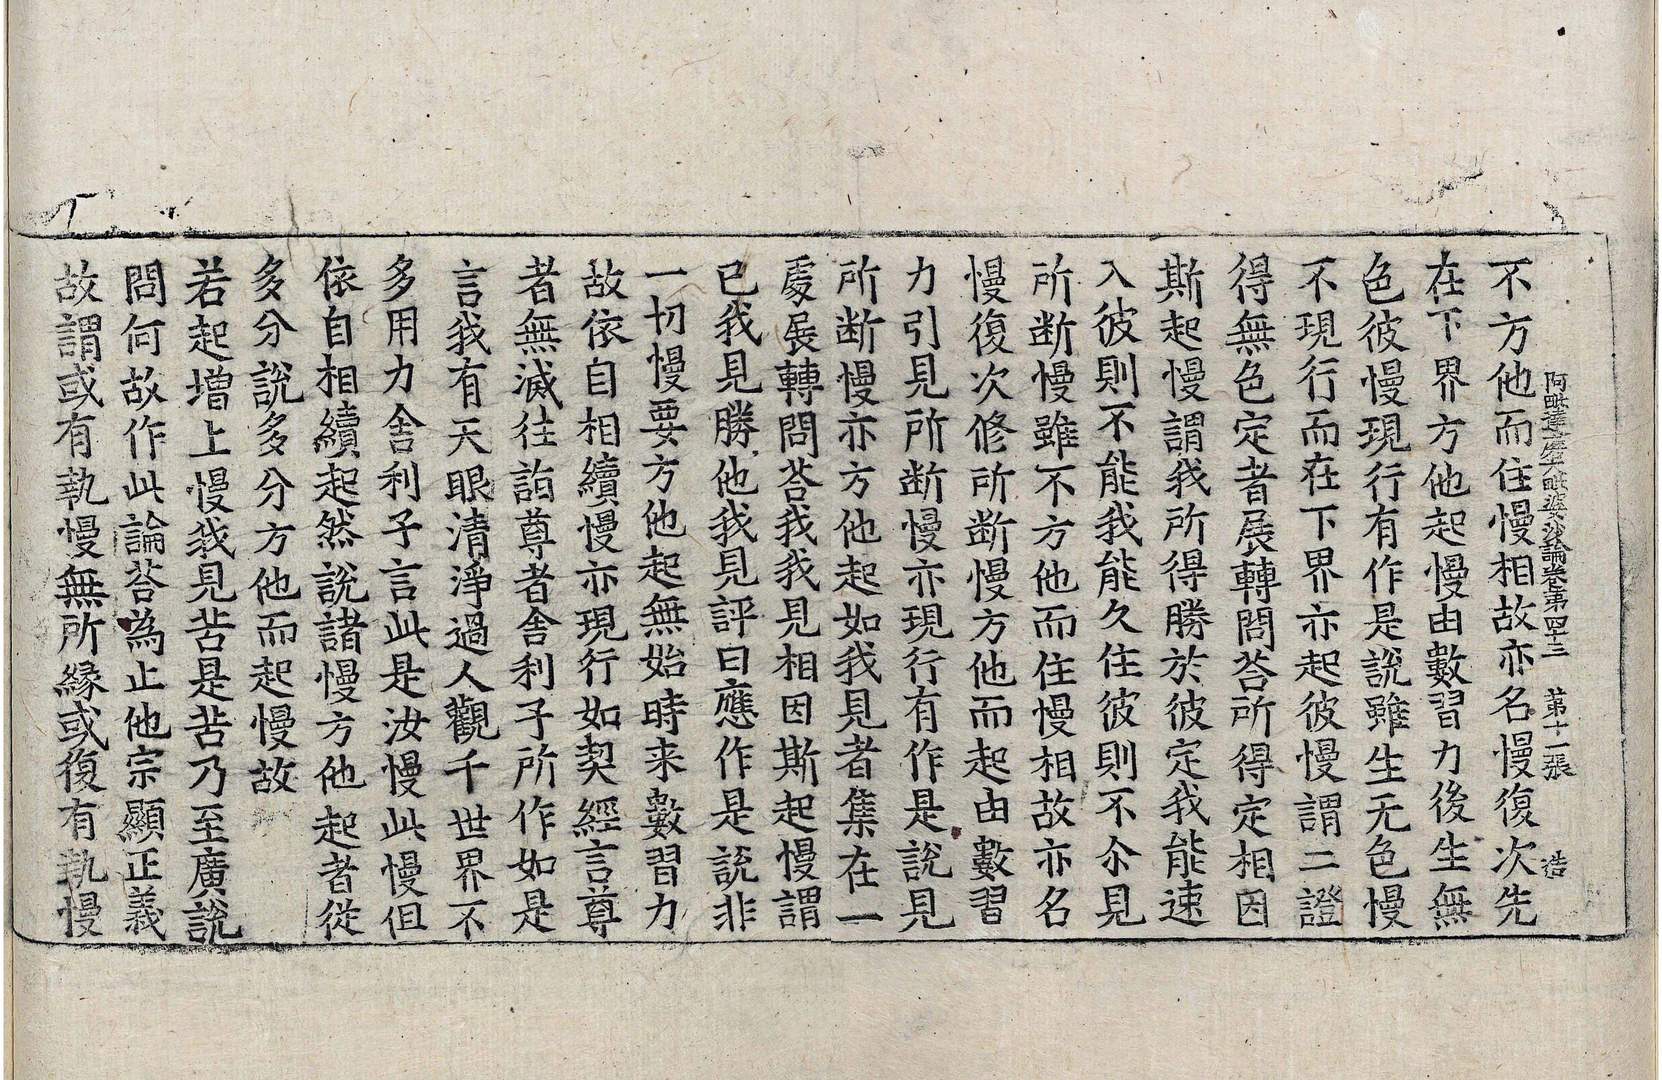 阿毗達磨大毗婆沙論卷第四十三 第十一張 造
不方他而住慢相故亦名慢復次先
在下界方他起慢由數習力後生無
色彼慢現行有作是說雖生无色慢
不現行而在下界亦起彼慢謂二證
得無色定者展轉問荅所得定相因
斯起慢謂我所得勝於彼定我能速
入彼則不能我能久住彼則不尒見
所断慢雖不方他而住慢相故亦名
慢復次修所断慢方他而起由數習
力引見所断慢亦現行有作是說見
所断慢亦方他起如我見者集在一
處展轉問荅我我見相因斯起慢謂
已我見勝他我見評曰應作是說非
一切慢要方他起無始時来數習力
故依自相續慢亦現行如契經言尊
者無滅往詣尊者舍利子所作如是
言我有天眼清淨過人觀千世界不
多用力舍利子言此是汝慢此慢但
依自相續起然說諸慢方他起者從
多分說多分方他而起慢故
若起增上慢我見苦是苦乃至廣說
問何故作此論荅為止他宗顯正義
故謂或有執慢無所緣或復有執慢